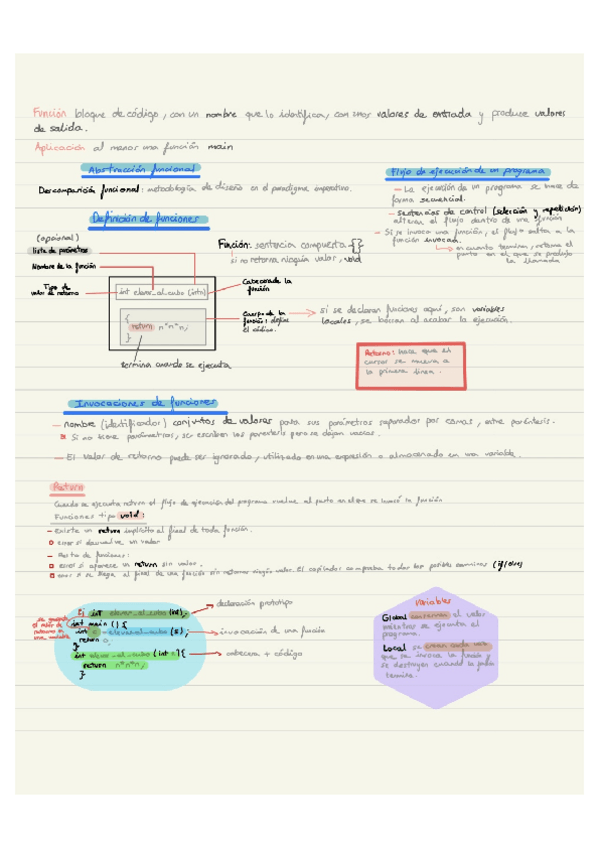 Función bloque de código, con un nombre que lo identifica, con unos valores de entrada y produce valores
de salida.
Aplicación al menos una función main
Abstracción funcional
Descomposición funcional: metodología de diseño en el paradigma imperativo.
Flujo de ejecución de un programa
— La ejecución de un programa se hace de
forma secuencial.
— sentencias de control (selección y repetición)
alteran el flujo dentro de una función
— Si se invoca una función, el flujo salta a la
función invocada.
en cuanto termina, retoma el
punto en el que se produjo
la llamada
Definición de funciones
(opcional)
lista de parámetros
Nombre de la función
Tipo de
valor de retorno
Función: sentencia compuesta {}
si no retorna ningún valor, void
int elevar_al_cubo (int n)
{
return n*n*n;
}
termina cuando se ejecuta
Cabecera de la
función
Cuerpo de la
función: define
el código.
si se declaran funciones aquí, son variables
locales, se borran al acabar la ejecución.
Retorno: hace que el
cursor se mueva a
la primera línea.
Invocaciones de funciones
— nombre (identificador) conjuntos de valores para sus parámetros separados por comas, entre paréntesis.
Si no tiene parámetros, se escriben los paréntesis pero se dejan vacíos.
— El valor de retorno puede ser ignorado, utilizado en una expresión o almacenado en una variable.
Return
Cuando se ejecuta return el flujo de ejecución del programa vuelve al punto en el que se invocó la función
Funciones tipo void:
— existe un return implícito al final de toda función.
error si devuelve un valor
— Resto de funciones:
error si aparece un return sin valor.
error si se llega al final de una función sin retornar ningún valor. El compilador comprueba todos los posibles caminos (if/else)
int elevar_al_cubo (int);
int main () {
int c = elevar_al_cubo (5);
return 0;
}
int elevar_al_cubo (int n) {
return n*n*n;
}
se guarda
el valor de
retorno en
una variable
declaración prototipo
invocación de una función
cabecera + código
Variables
Global conservan el valor
mientras se ejecuta el
programa.
Local se crean cada vez
que se invoca la función y
se destruyen cuando la función
termina.